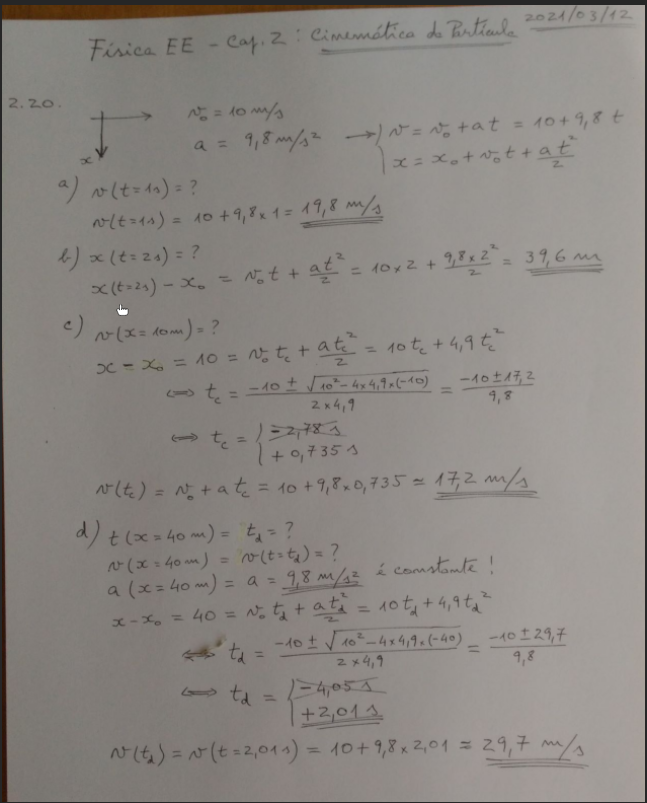 2021/03/12
Física EE - Cap. 2 : Cinemática da Partícula
2.20.
v₀ = 10 m/s
a = 9,8 m/s² → { v = v₀ + at = 10 + 9,8 t
x = x₀ + v₀t + at²/2
x
a) v(t=1s) = ?
v(t=1s) = 10 + 9,8 × 1 = 19,8 m/s
b) x(t=2s) = ?
x(t=2s) - x₀ = v₀t + at²/2 = 10×2 + 9,8×2²/2 = 39,6 m
c) v(x=10m) = ?
x - x₀ = 10 = v₀ t_c + at_c²/2 = 10t_c + 4,9 t_c²
⇔ t_c = (-10 ± √(10² - 4×4,9×(-10)))/(2×4,9) = (-10 ± 17,2)/9,8
⇔ t_c = { -2,78 s
+0,735 s
v(t_c) = v₀ + a t_c = 10 + 9,8×0,735 ≃ 17,2 m/s
d) t(x=40m) = t_d = ?
v(x=40m) = v(t=t_d) = ?
a(x=40m) = a = 9,8 m/s² é constante !
x - x₀ = 40 = v₀ t_d + at_d²/2 = 10t_d + 4,9t_d²
⇔ t_d = (-10 ± √(10² - 4×4,9×(-40)))/(2×4,9) = (-10 ± 29,7)/9,8
⇔ t_d = { -4,05 s
+2,01 s
v(t_d) = v(t=2,01s) = 10 + 9,8×2,01 ≃ 29,7 m/s